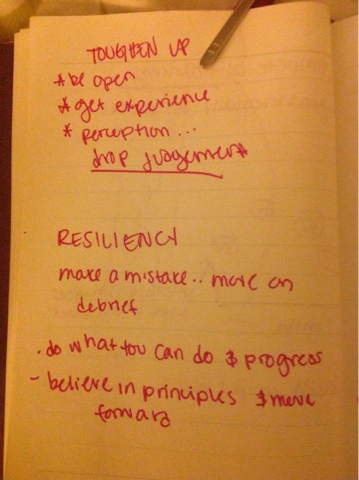 TOUGHEN UP
* be open
* get experience
* perception...
drop judgement
RESILIENCY
make a mistake.. move on
debrief
· do what you can do & progress
- believe in principles & move
forward